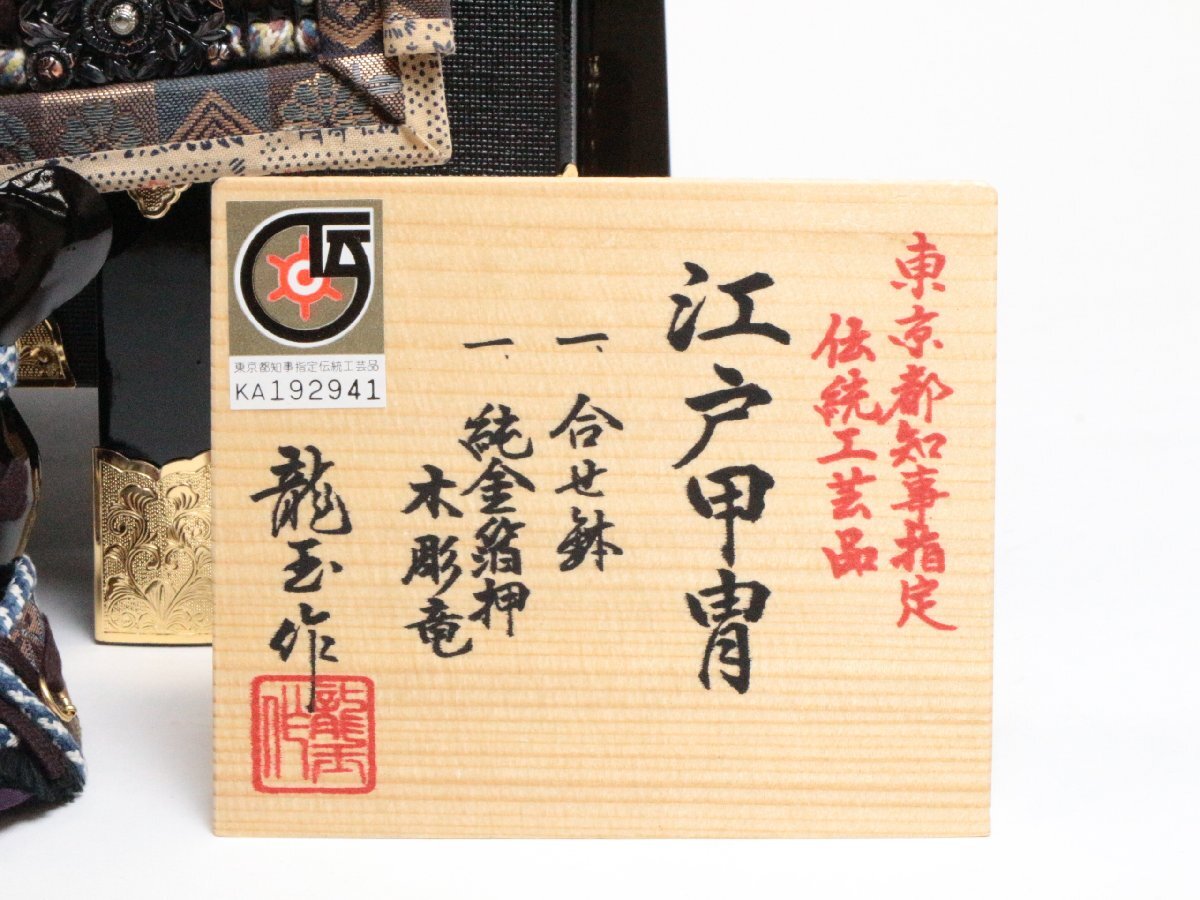 東京都知事指定
伝統工芸品
江戸甲冑
一、合せ鉢
一、純金箔押
木彫竜
龍玉作
東京都知事指定伝統工芸品
KA192941
龍玉
作